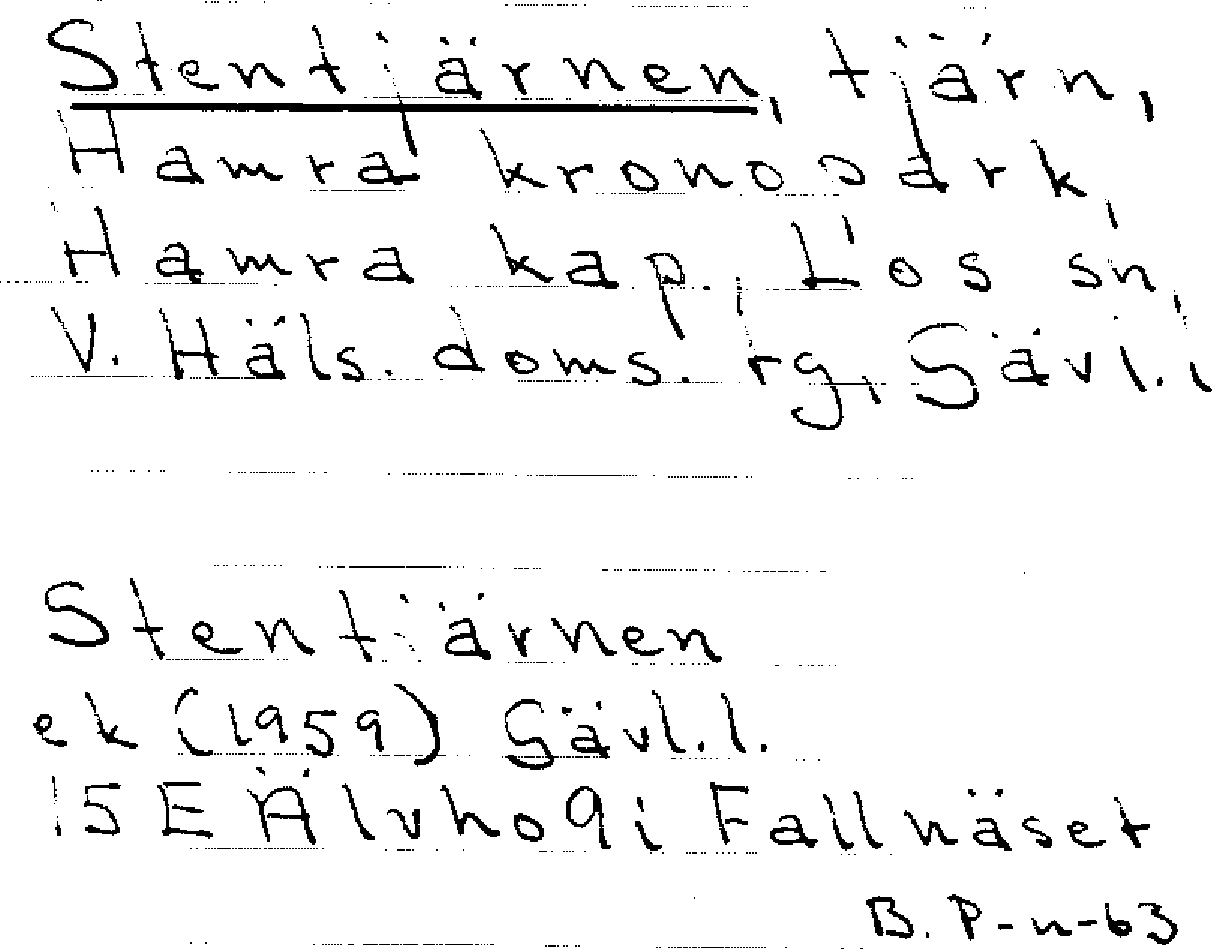 Stentjärnen, tjärn,
Hamra kronopark,
Hamra kap., Los sn,
V. Häls. doms. rg, Gävl. l.
Stentjärnen
ek (1959) Gävl. l.
15 E Älvho 9i Fallnäset
B. P-n-63